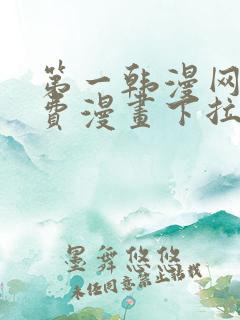 第一韩漫网
费漫畫下拉
墨舞悠悠
未经同意禁止转载